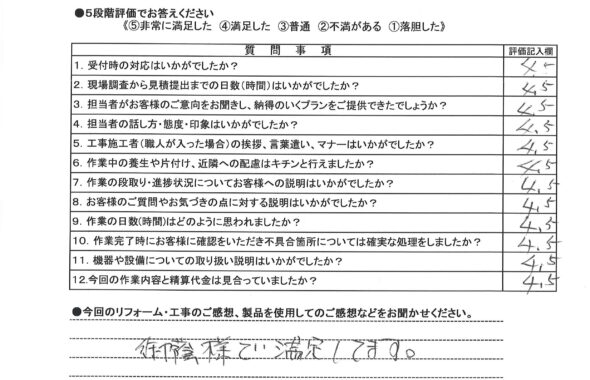 ●5段階評価でお答えください
《⑤非常に満足した ④満足した ③普通 ②不満がある ①落胆した》
質問事項 評価記入欄
1. 受付時の対応はいかがでしたか? 4.5
2. 現場調査から見積提出までの日数(時間)はいかがでしたか? 4.5
3. 担当者がお客様のご意向をお聞きし、納得のいくプランをご提供できたでしょうか? 4.5
4. 担当者の話し方・態度・印象はいかがでしたか? 4.5
5. 工事施工者(職人が入った場合)の挨拶、言葉遣い、マナーはいかがでしたか? 4.5
6. 作業中の養生や片付け、近隣への配慮はキチンと行えましたか? 4.5
7. 作業の段取り・進捗状況についてお客様への説明はいかがでしたか? 4.5
8. お客様のご質問やお気づきの点に対する説明はいかがでしたか? 4.5
9. 作業の日数(時間)はどのように思われましたか? 4.5
10. 作業完了時にお客様に確認をいただき不具合箇所については確実な処理をしましたか? 4.5
11. 機器や設備についての取り扱い説明はいかがでしたか? 4.5
12.今回の作業内容と精算代金は見合っていましたか? 4.5
●今回のリフォーム・工事のご感想、製品を使用してのご感想などをお聞かせください。
御陰様で満足してます。